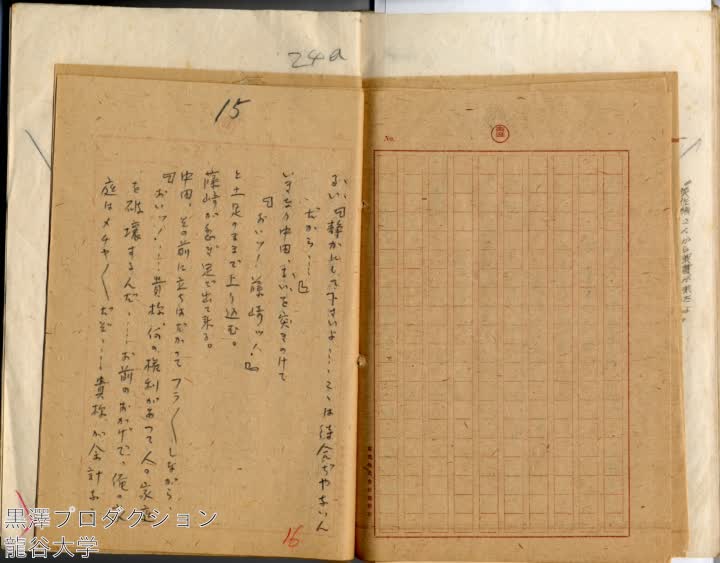 24a
15
るい「静かにして下さいよ……こゝは待合ぢやないん
だから……」
いきなり中田、るいを突きのけて
「おいッ! 藤崎ッ!」
と土足のまゝで上り込む。
藤崎が急ぎ足で出て来る。
中田、その前に立ちはだかってフラ〱しながら
「おいッ!……貴様、何の権利があつて人の家庭
を破壊するんだ、……お前のおかげで、俺の家
庭はメチヤ〱だぞ……貴様が余計な
16
No.
黒澤プロダクション
龍谷大学